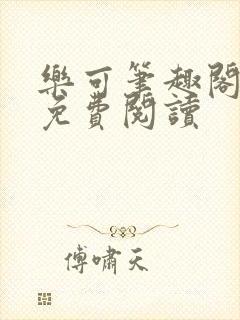 樂可筆趣閣
免費閱讀
傅嘯天